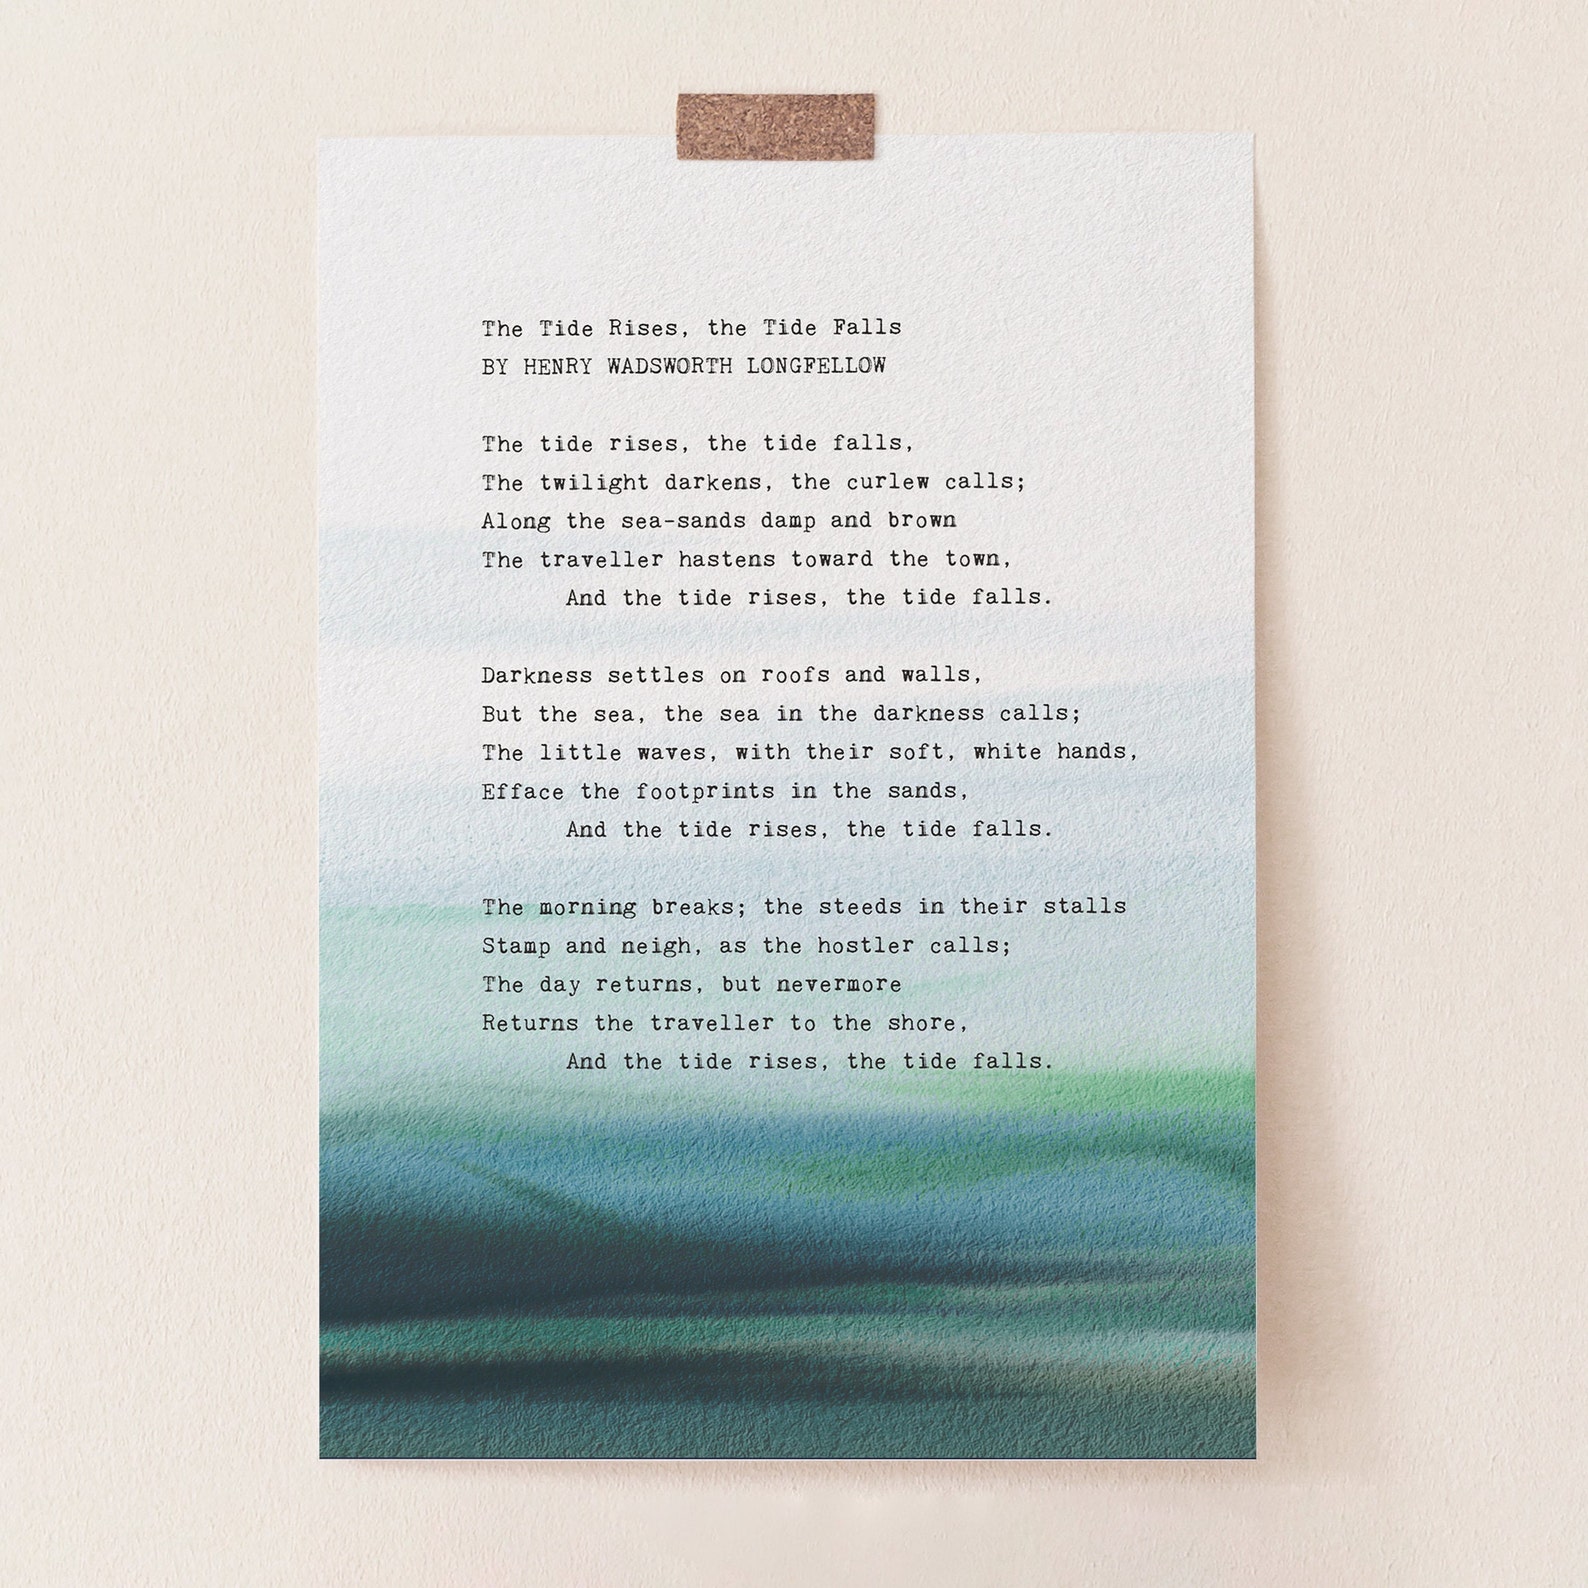 The Tide Rises, the Tide Falls
BY HENRY WADSWORTH LONGFELLOW
The tide rises, the tide falls,
The twilight darkens, the curlew calls;
Along the sea-sands damp and brown
The traveller hastens toward the town,
And the tide rises, the tide falls.
Darkness settles on roofs and walls,
But the sea, the sea in the darkness calls;
The little waves, with their soft, white hands,
Efface the footprints in the sands,
And the tide rises, the tide falls.
The morning breaks; the steeds in their stalls
Stamp and neigh, as the hostler calls;
The day returns, but nevermore
Returns the traveller to the shore,
And the tide rises, the tide falls.